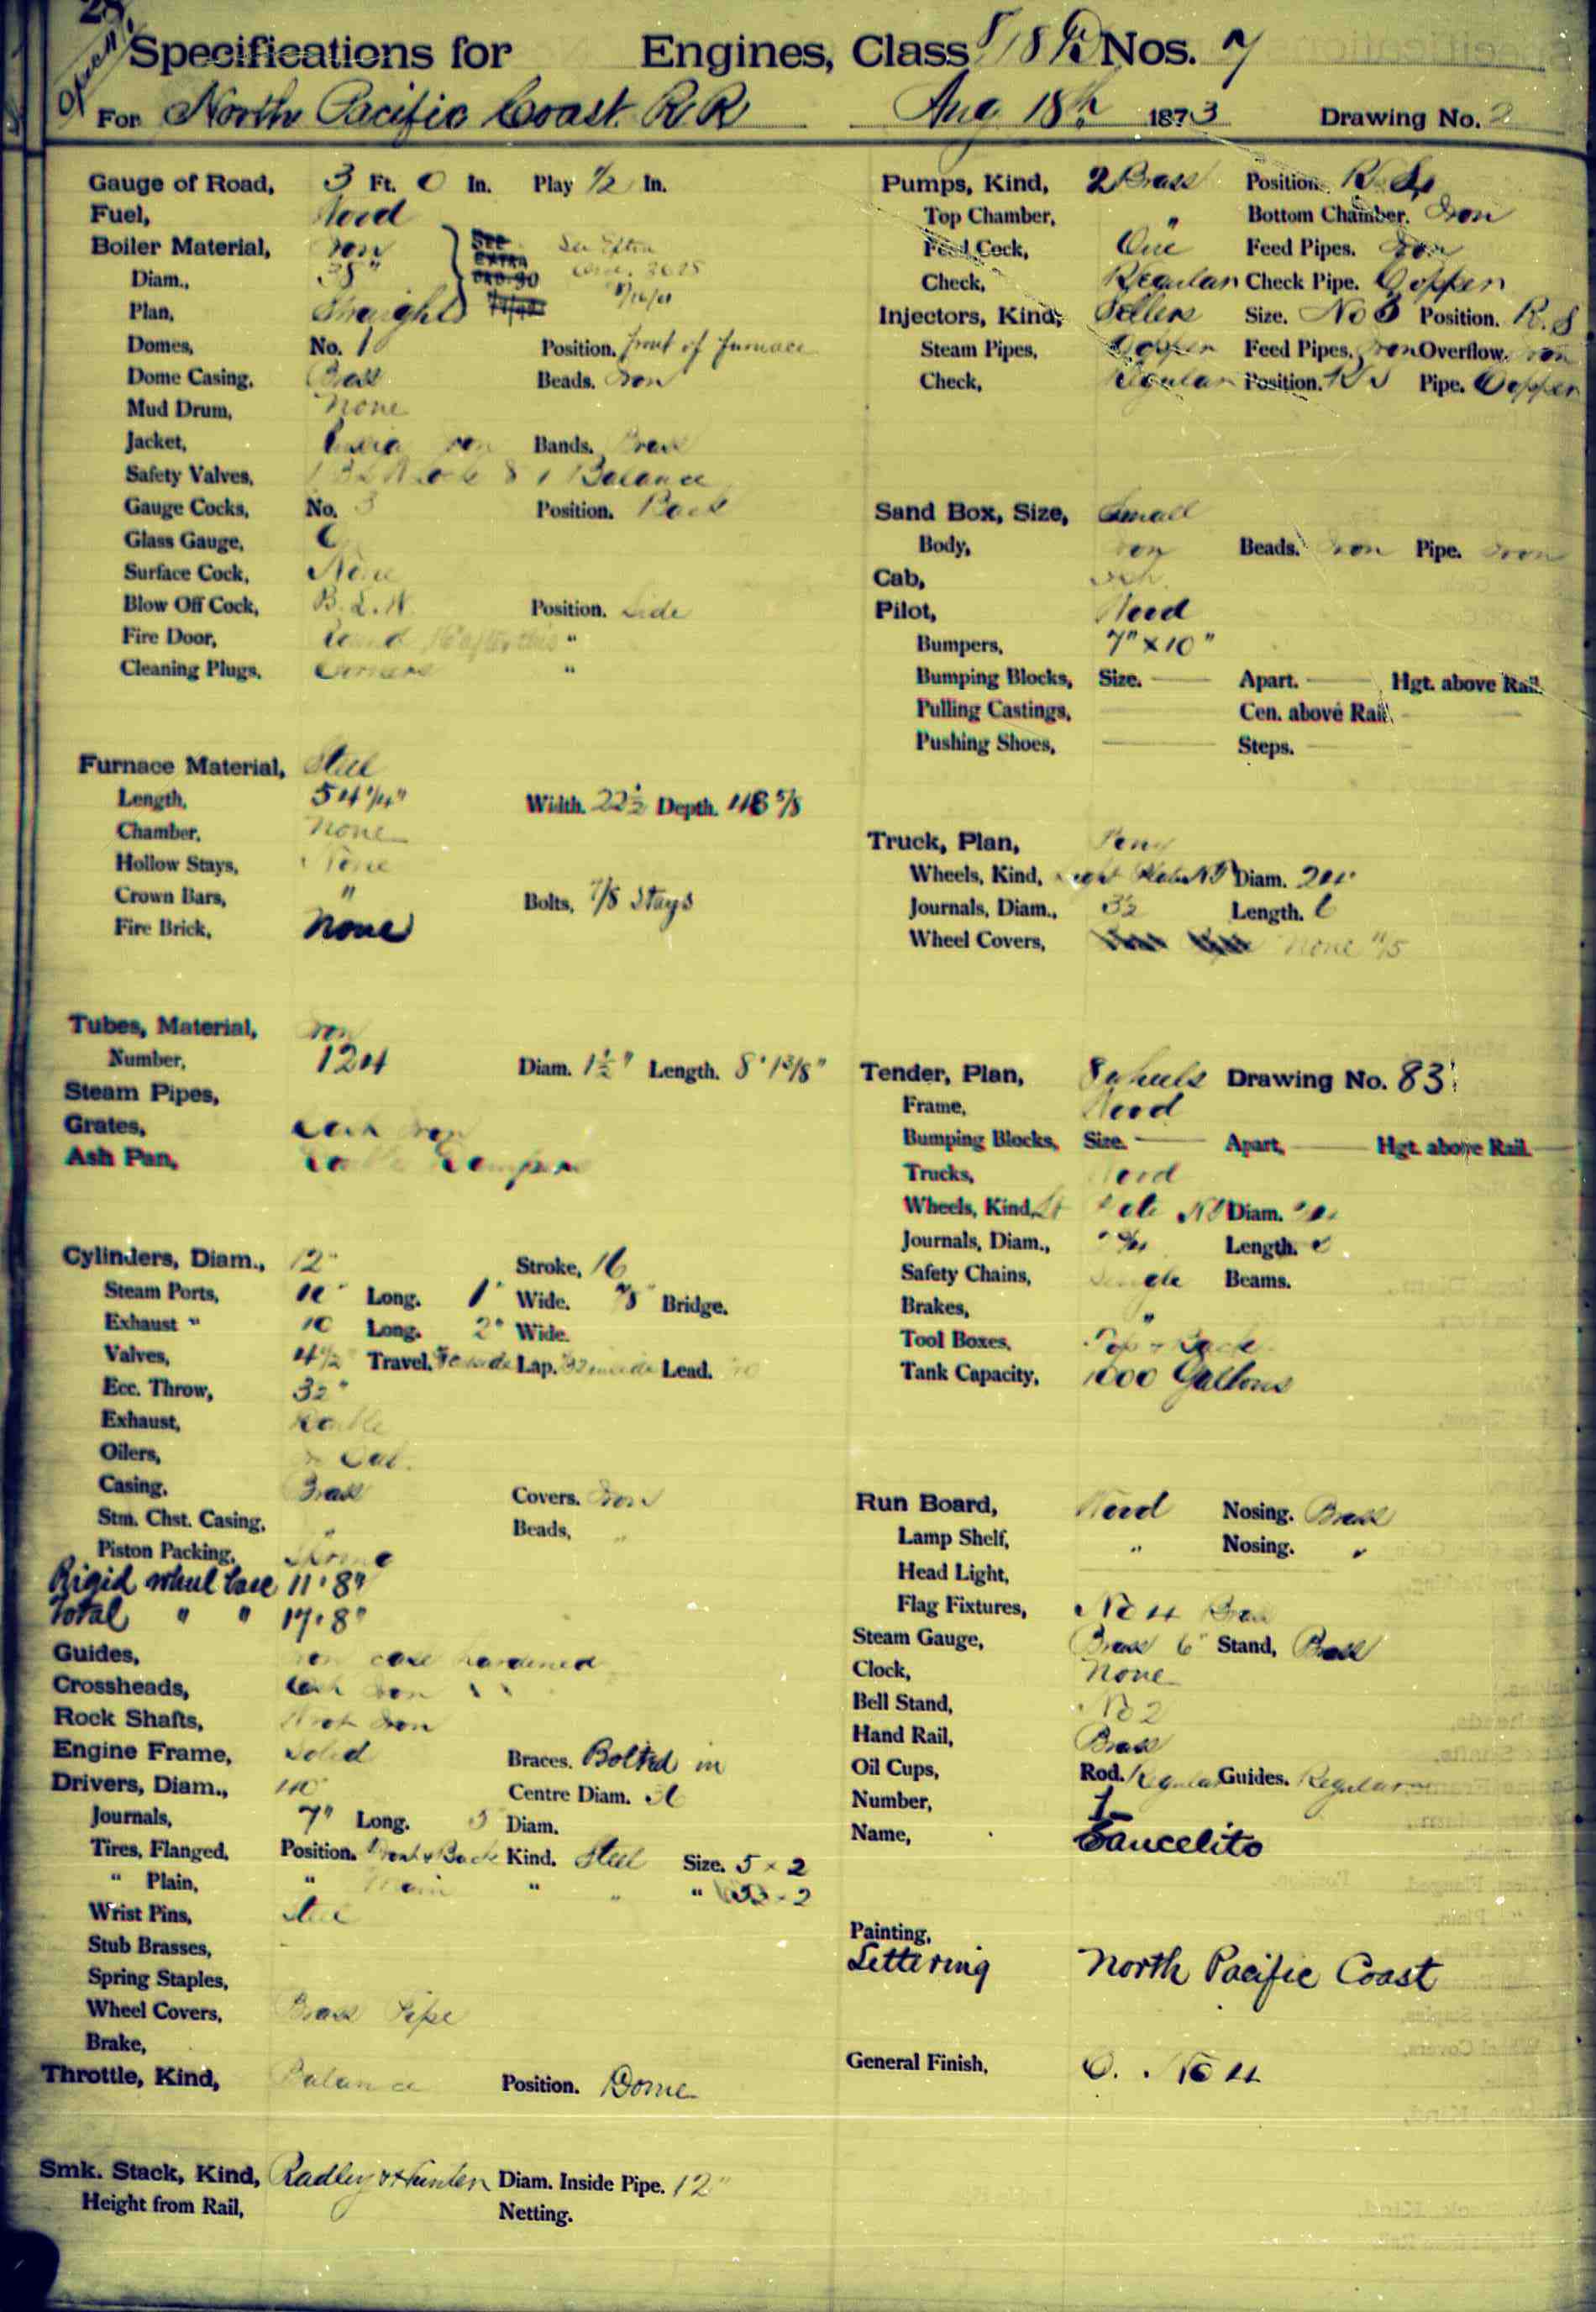 Specifications for Engines, Class 8/18 D Nos. 7
For North Pacific Coast R R Aug 18th 1873 Drawing No. 2
Gauge of Road, 3 Ft. 0 In. Play 1/2 In.
Fuel, Wood
Boiler Material, Iron
Diam., 38"
Plan, Straight
Domes, No. 1 Position. front of furnace
Dome Casing, Brass Beads. Iron
Mud Drum, None
Jacket, Iron Bands. Brass
Safety Valves, 1 Balance
Gauge Cocks, No. 3 Position. Back
Glass Gauge,
Surface Cock, None
Blow Off Cock, B. L. W. Position. Side
Fire Door, "
Cleaning Plugs, Corners "
Furnace Material, Steel
Length, 54 1/4" Width. 22 1/2 Depth. 5/8
Chamber, None
Hollow Stays, None
Crown Bars, " Bolts, 7/8 Stays
Fire Brick, None
Tubes, Material, Iron
Number, 124 Diam. 1 1/2" Length. 8' 1 3/8"
Steam Pipes,
Grates, Cast Iron
Ash Pan, Double Dampers
Cylinders, Diam., 12" Stroke, 16
Steam Ports, 10" Long. 1" Wide. 7/8" Bridge.
Exhaust " 10 Long. 2" Wide.
Valves, 4 1/2" Travel. Lap. Lead.
Ecc. Throw,
Exhaust, Double
Oilers, in Cab.
Casing, Brass Covers. Iron
Stm. Chst. Casing, " Beads, "
Piston Packing,
Rigid wheel base 11'8"
Total " " 17'8"
Guides, Iron case hardened
Crossheads, Cast Iron
Rock Shafts, Wrot Iron
Engine Frame, Solid Braces. Bolted in
Drivers, Diam., 40" Centre Diam. 36
Journals, 7" Long. 5 Diam.
Tires, Flanged, Position. Front & Back Kind. Steel Size. 5 × 2
" Plain, " Main " " "
Wrist Pins, Steel
Stub Brasses,
Spring Staples,
Wheel Covers, Brass Pipe
Brake,
Throttle, Kind, Balance Position. Dome
Smk. Stack, Kind, Radley & Hunter Diam. Inside Pipe. 12"
Height from Rail, Netting.
Pumps, Kind, 2 Brass Position. R. S.
Top Chamber, " Bottom Chamber. Iron
Feed Cock, One Feed Pipes. Iron
Check, Regular Check Pipe. Copper
Injectors, Kind, Sellers Size. No Position. R. S
Steam Pipes, Copper Feed Pipes. Iron Overflow. Iron
Check, Regular Position. R S Pipe. Copper
Sand Box, Size, Small
Body, Iron Beads. Iron Pipe. Iron
Cab, Ash
Pilot, Wood
Bumpers, 7" × 10"
Bumping Blocks, Size. — Apart. — Hgt. above Rail.
Pulling Castings, — Cen. above Rail. —
Pushing Shoes, — Steps. —
Truck, Plan, Pony
Wheels, Kind, Diam. 24"
Journals, Diam., 3 1/2 Length. 6
Wheel Covers, None
Tender, Plan, 8 wheels Drawing No. 83
Frame, Wood
Bumping Blocks, Size. — Apart, — Hgt. above Rail. —
Trucks, Wood
Wheels, Kind, Diam. 24
Journals, Diam., Length. 6
Safety Chains, Single Beams.
Brakes, "
Tool Boxes, Top & Back
Tank Capacity, 1000 Gallons
Run Board, Wood Nosing. Brass
Lamp Shelf, " Nosing. "
Head Light,
Flag Fixtures, No 4 Brass
Steam Gauge, Brass 6" Stand, Brass
Clock, None
Bell Stand, No 2
Hand Rail, Brass
Oil Cups, Rod. Regular Guides. Regular
Number, 1
Name, Saucelito
Painting,
Lettering North Pacific Coast
General Finish, O. No 4